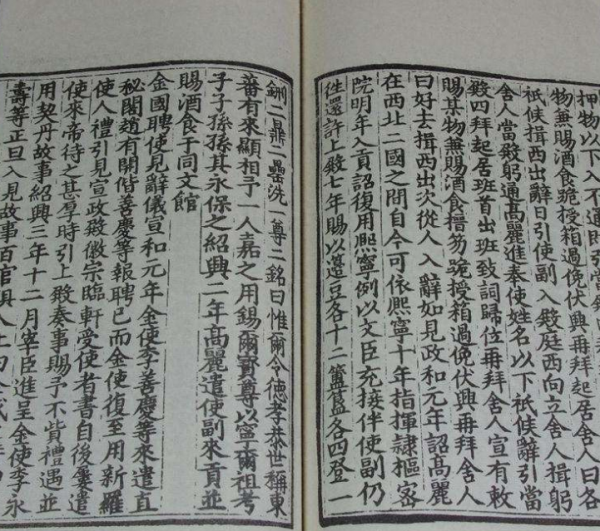 押物以下入不通即引當
物無賜酒食跪授箱過俛伏興再拜起居舍人曰各
祇候揖西出辭日引使副入殿庭西向立舍人揖躬
舍人當殿躬通髙麗進奉使姓名以下祇候辭引當
殿四拜起居班首出班致詞歸位再拜舍人宣有敕
賜某物無賜酒食搢笏跪授箱過俛伏興再拜舍人
曰好去揖西出次從人入辭如見政和元年詔髙麗
在西北二國之間自今可依熙寧十年指揮隷樞密
院明年入貢詔復用熙寧例以文臣充接伴使副仍
徃還許上殿七年賜以籩豆各十二簠簋各四登一
鉶二鼎二罍洗一尊二銘曰惟爾令德孝恭世稱東
蕃有來顯相予一人嘉之用錫爾寶尊以寧爾祖考
子子孫孫其永保之紹興二年髙麗遣使副來貢並
賜酒食于同文館
金國聘使見辭儀宣和元年金使李善慶等來遣直
秘閣趙有開偕善慶等報聘已而金使復至用新羅
使人禮引見宣政殿徽宗臨軒受使者書自後屢遣
使來帝待之甚厚時引上殿奏事賜予不貲禮遇並
用契丹故事紹興三年十二月宰臣進呈金使李永
壽等正旦入見故事百官俱入上曰全